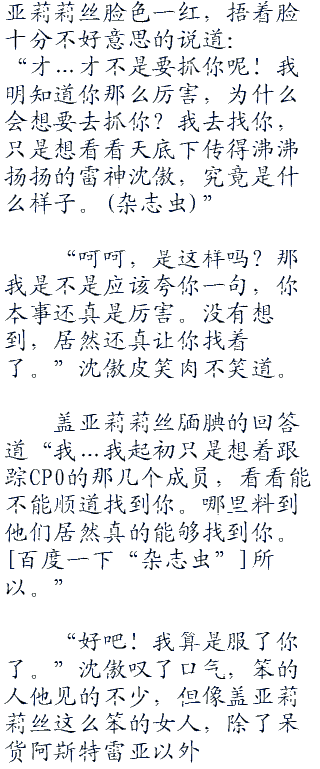 亚莉莉丝脸色一红，捂着脸
十分不好意思的说道：
“才…才不是要抓你呢！我
明知道你那么厉害，为什么
会想要去抓你？我去找你，
只是想看看天底下传得沸沸
扬扬的雷神沈傲，究竟是什
么样子。(杂志虫)”
“呵呵，是这样吗？那
我是不是应该夸你一句，你
本事还真是厉害。没有想
到，居然还真让你找着
了。”沈傲皮笑肉不笑道。
盖亚莉莉丝腼腆的回答
道“我…我起初只是想着跟
踪CP0的那几个成员，看看能
不能顺道找到你。哪里料到
他们居然真的能够找到你。
[百度一下“杂志虫”]所
以。”
“好吧！我算是服了你
了。”沈傲叹了口气，笨的
人他见的不少，但像盖亚莉
莉丝这么笨的女人，除了呆
货阿斯特雷亚以外